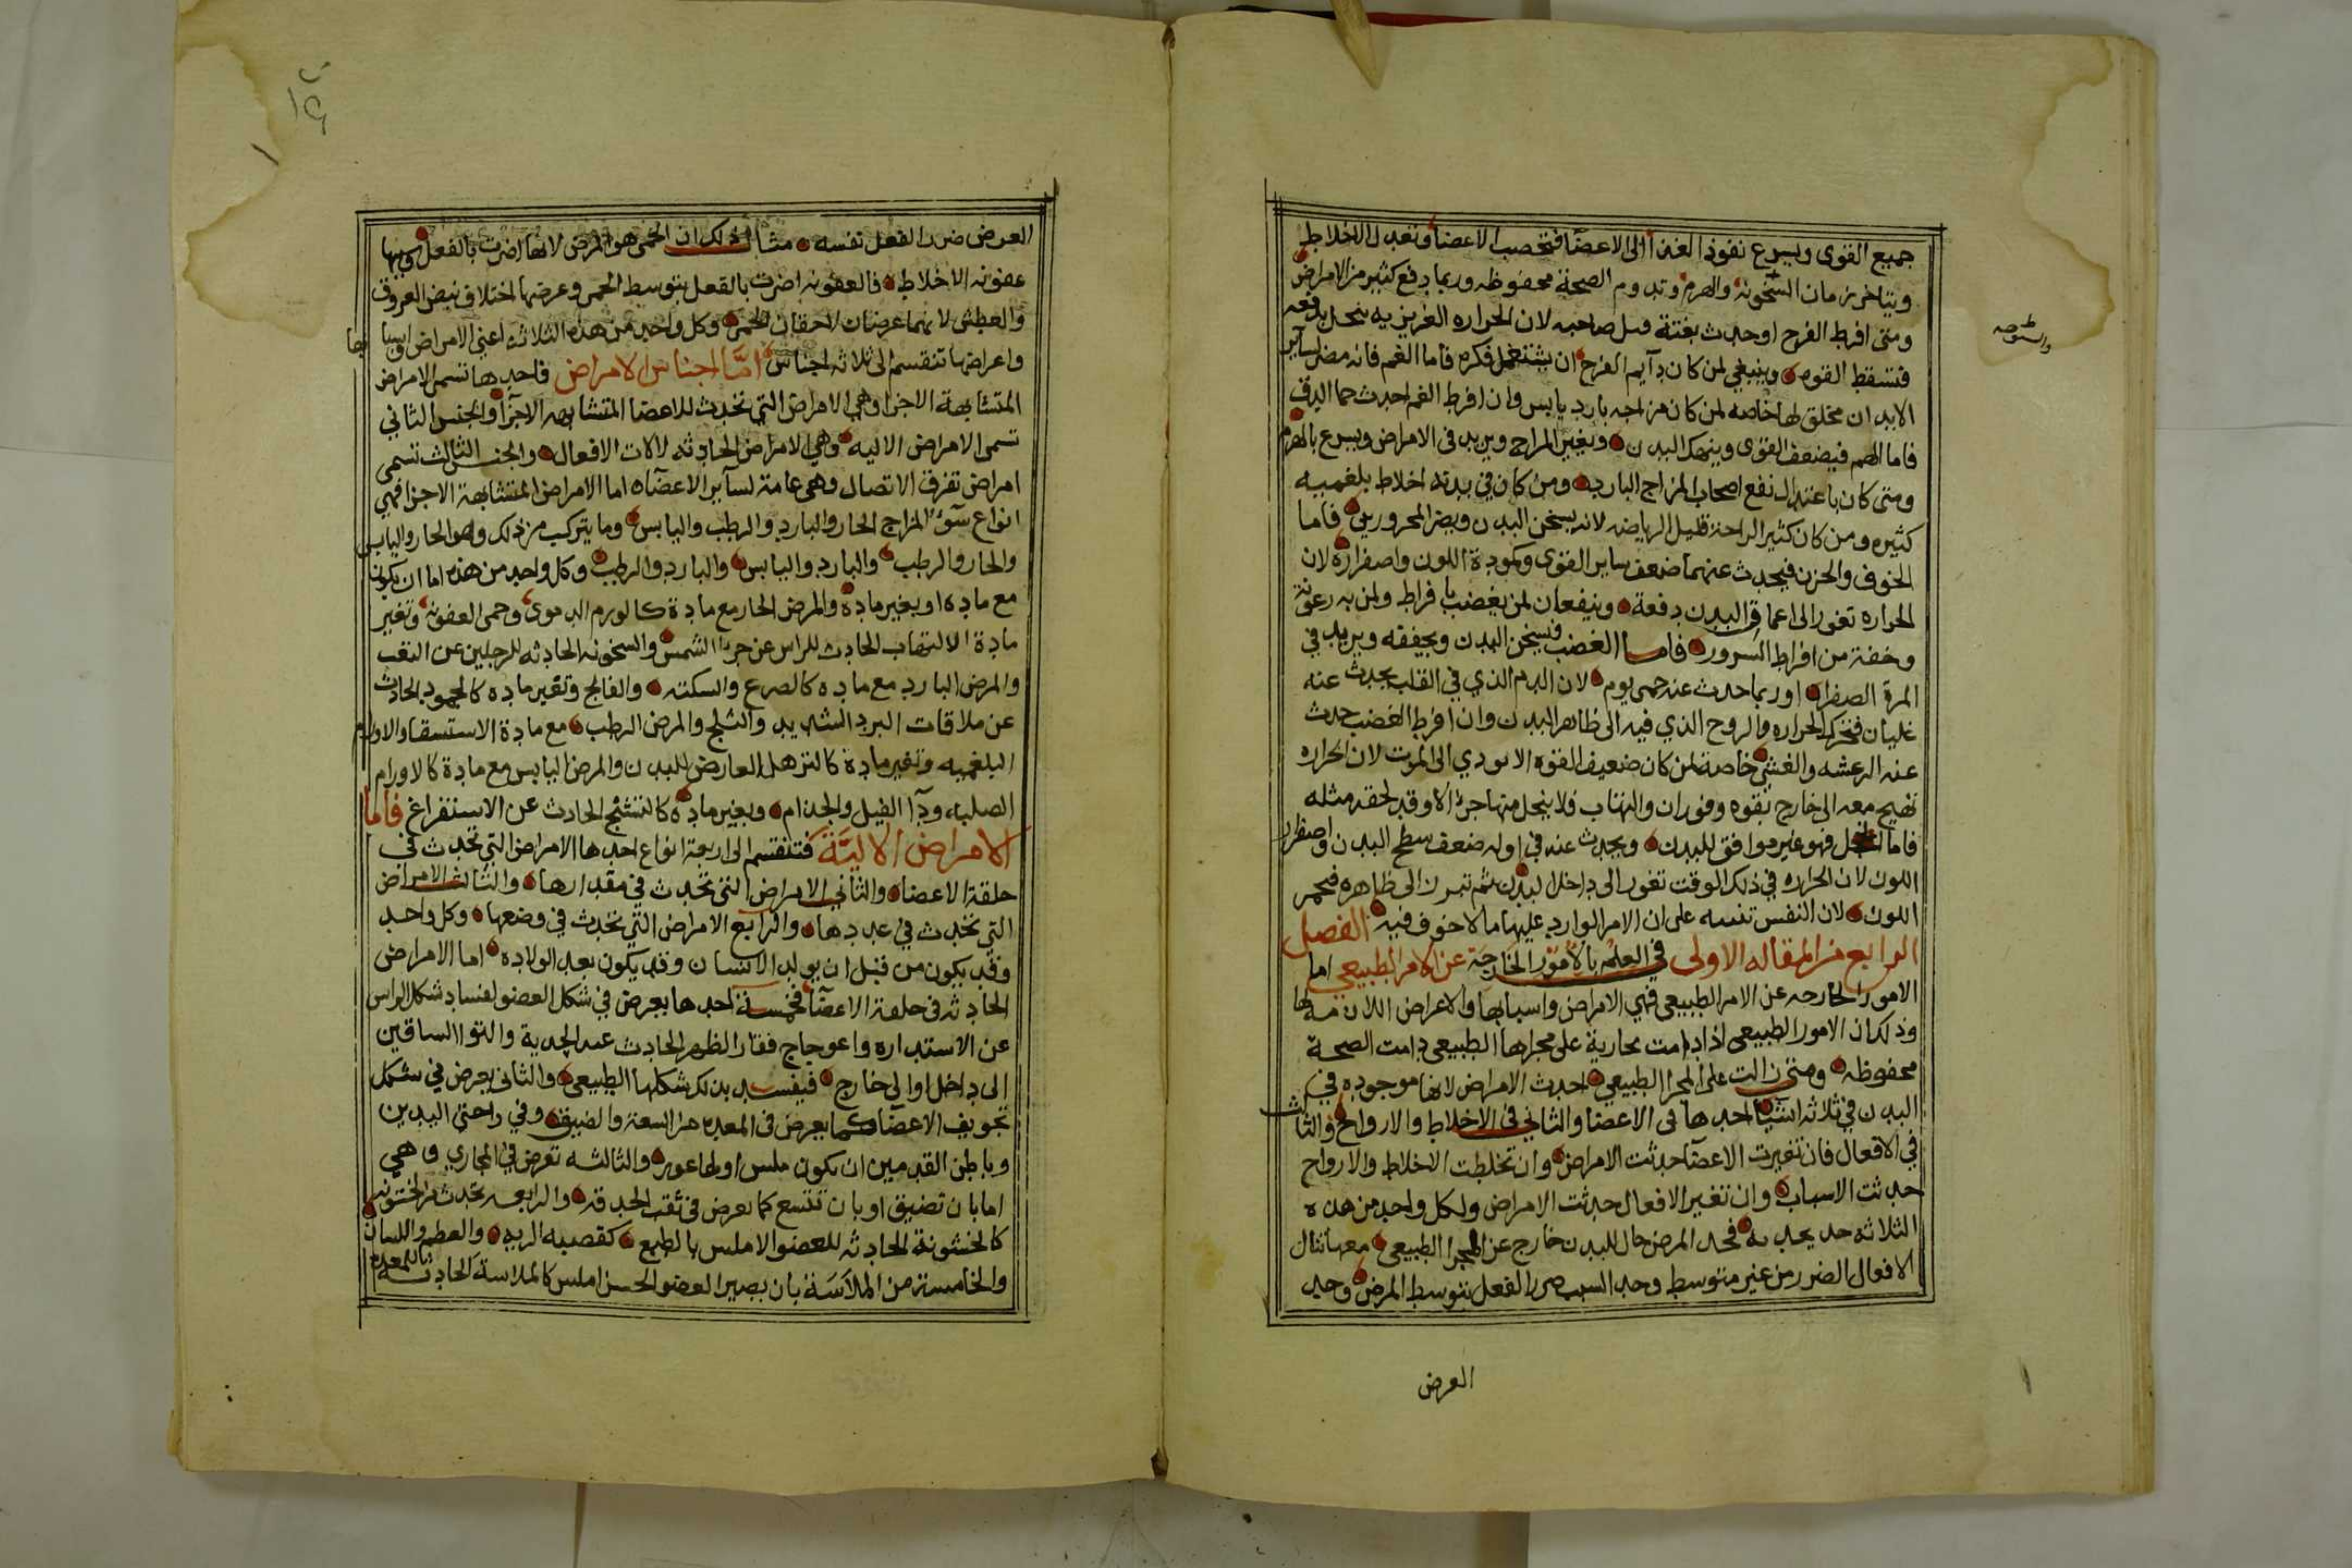 جميع القوى ويسرع نفوذ الغذا الى الاعضا فتخصب الاعضا وتعدل الاخلاط
ويتاخر زمان الشيخوخة والهرم وتدوم الصحة محفوظه وربما دفع كثير من الامراض
ومتى افرط الفرح او حدث بغتة قتل صاحبه لان الحراره الغريزيه ينحل بدفعه
فتسقط القوه وينبغي لمن كان دآيم الفرح ان يشتغل فكره فاما الغم فانه مضر لسآير
الابدان مخلق لها خاصه لمن كان مزاجه بارد يابس وان افرط الغم احدث حما الدق
فاما الهم فيضعف القوى وينهك البدن ويغير المزاج ويزيد في الامراض ويسرع بالهرم
ومتى كان باعتدال نفع اصحاب المزاج البارده ومن كان في بدنه اخلاط بلغميه
كثيره ومن كان كثير الراحة قليل الرياضه لانه يسخن البدن ويضر المحرورين فاما
الخوف والحزن فيحدث عنهما ضعف ساير القوى وكمودة اللون واصفراره لان
الحراره تغور الى اعماق البدن دفعة وينفعان لمن يغضب بافراط ولمن به رعونة
وخفة من افراط السرور فاما الغضب فيسخن البدن ويجففه ويزيد في
المرة الصفرا وربما حدث عنه حمى يوم لان الدم الذي في القلب يحدث عنه
غليان فتتحرك الحراره والروح الذي فيه الى ظاهر البدن وان افرط الغضب حدث
عنه الرعشه والغشي خاصة لمن كان ضعيف القوه الا يودي الى الموت لان الحراره
تهيج معه الى خارج بقوه وفوران والتهاب فلا ينحل منها جزا الا وقد لحقه مثله
فاما الخجل فهو غير موافق للبدن ويحدث عنه في اوله ضعف سطح البدن واصفرار
اللون لان الحراره في ذلك الوقت تغور الى داخل البدن ثم تبرز الى ظاهره فيحمر
اللون لان النفس تنبه على ان الامر الوارد عليها ما لا خوف فيه الفصل
الرابع من المقاله الاولى في العلم بالأمور الخارجة عن الامر الطبيعي اما
الامور الخارجه عن الامر الطبيعي فهي الامراض واسبابها والاعراض اللازمه لها
وذلك ان الامور الطبيعي اذا دامت جارية على مجراها الطبيعي دامت الصحة
محفوظه ومتى زالت على المجرا الطبيعي احدث الامراض لانها موجوده في
البدن في ثلاثه اشيا احدها في الاعضا والثاني في الاخلاط والارواح والثالث
في الافعال فان تغيرت الاعضآ حدثت الامراض وان تخلطت الاخلاط والارواح
حدثت الاسباب وان تغير الافعال حدثت الامراض ولكل واحد من هده
الثلاثه حد يحد به فحد المرض حال للبدن خارج عن المجرا الطبيعي معها تنال
الافعال الضرر من غير متوسط وحد السبب ضرر الفعل بتوسط المرض وحد
العرض
العرض ضرر الفعل نفسه مثال ذلك ان الحمى هو المرض لانها اضرت بالفعل وسببها
عفونه الاخلاط فالعفونه اضرت بالفعل بتوسط الحمى وعرضها اختلاف نبض العروق
والعطش لانهما عرضان لاحقان للحمى وكل واحد من هذه الثلاثه اعني الامراض واسبا
بها
واعراضها تنقسم الى ثلاثه اجناس امّا اجناس الامراض فاحدها تسمى الامراض
المتشابهة الاجزا وهي الامراض التي تحدث للاعضا المتشابهه الاجزآ والجنس الثاني
تسمى الامراض الاليه وهي الامراض الحادثه لالات الافعال والجنس الثالث تسمى
امراض تفرق الاتصال وهي عامة لسآير الاعضآ اما الامراض المتشابهة الاجزا فهي
انواع سوء المزاج الحار والبارد والرطب واليابس وما يتركب من ذلك وهو الحار واليابس
والحار والرطب والبارد واليابس والبارد والرطب وكل واحد من هذه اما ان يكون
مع ماده او بغير مادة والمرض الحار مع مادة كالورم الدموى وحمى العفونه وتغير
مادة الالتهاب الحادث للراس عن حر الشمس والسخونه الحادثه للرجلين عن التعب
والمرض البارد مع ماده كالصرع والسكته والفالج وتغير ماده كالجمود الحادث
عن ملاقات البرد الشديد والثلج والمرض الرطب مع مادة الاستسقا والاورام
البلغميه وتغير مادة كالترهل العارض للبدن والمرض اليابس مع مادة كالاورام
الصلبه ودآ الفيل والجذام وبغير مادة كالتشنج الحادث عن الاستفراغ فاما
الامراض الاليّة فتنقسم الى اربعة انواع احدها الامراض التي تحدث في
خلقة الاعضا والثاني الامراض التي تحدث في مقدارها والثالث الامراض
التي تحدث في عددها والرابع الامراض التي تحدث في وضعها وكل واحد
وقد يكون من قبل ان يولد الانسان وقد يكون بعد الولاده اما الامراض
الحادثه في خلقة الاعضآ فخمسة احدها يعرض في شكل العضو لفساد شكل الراس
عن الاستداره واعوجاج فقار الظهر الحادث عند الحدبة والتوا الساقين
الى داخل او الى خارج فيفسد بذلك شكلها الطبيعي والثاني يعرض في شكل
تجويف الاعضآ كما يعرض في المعده من السعة والضيق وفي راحتي اليدين
وباطن القدمين ان يكون ملس او لها غور والثالثه تعرض في المجاري وهي
اما بان تضيق او بان تتسع كما يعرض في ثقب الحدقه والرابعه تحدث من الخشونه
كالخشونة الحادثه للعضو الاملس بالطبع كقصبه الريه والعظم واللسان
والخامسة من الملاسَة بان يصير العضو الخشن املس كالملاسة الحادثه
بالمعده